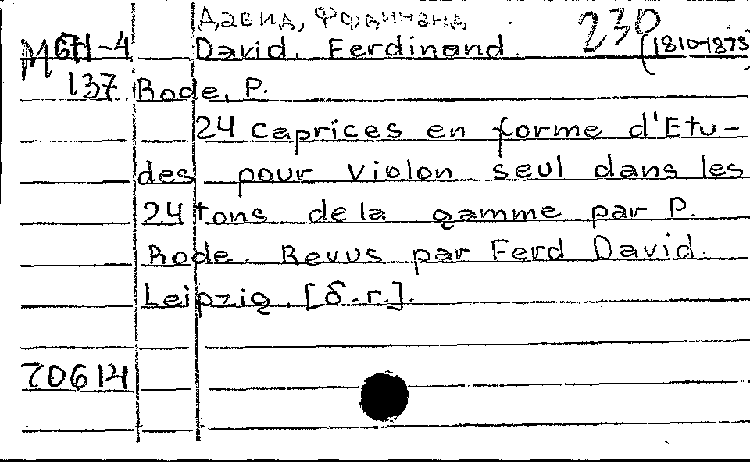 Давид, Фердинанд.
230
David, Ferdinand. (1810-1873
137 Rode, P.
24 caprices en forme d'Etu-
des pour violon seul dans les
24 tons de la gamme par P.
Rode. Revus par Ferd David.
Leipzig. [б.г.].